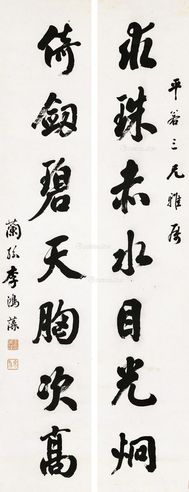 平谷三兄雅属
求珠赤水目光炯
倚劔碧天胸次高
蘭孫李鴻藻